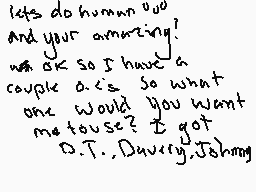 lets do human uuu
And your amazing!
ok so I have a
couple o.c's so what
one would you want
me to use? I got
D.T., Davery, Johnny